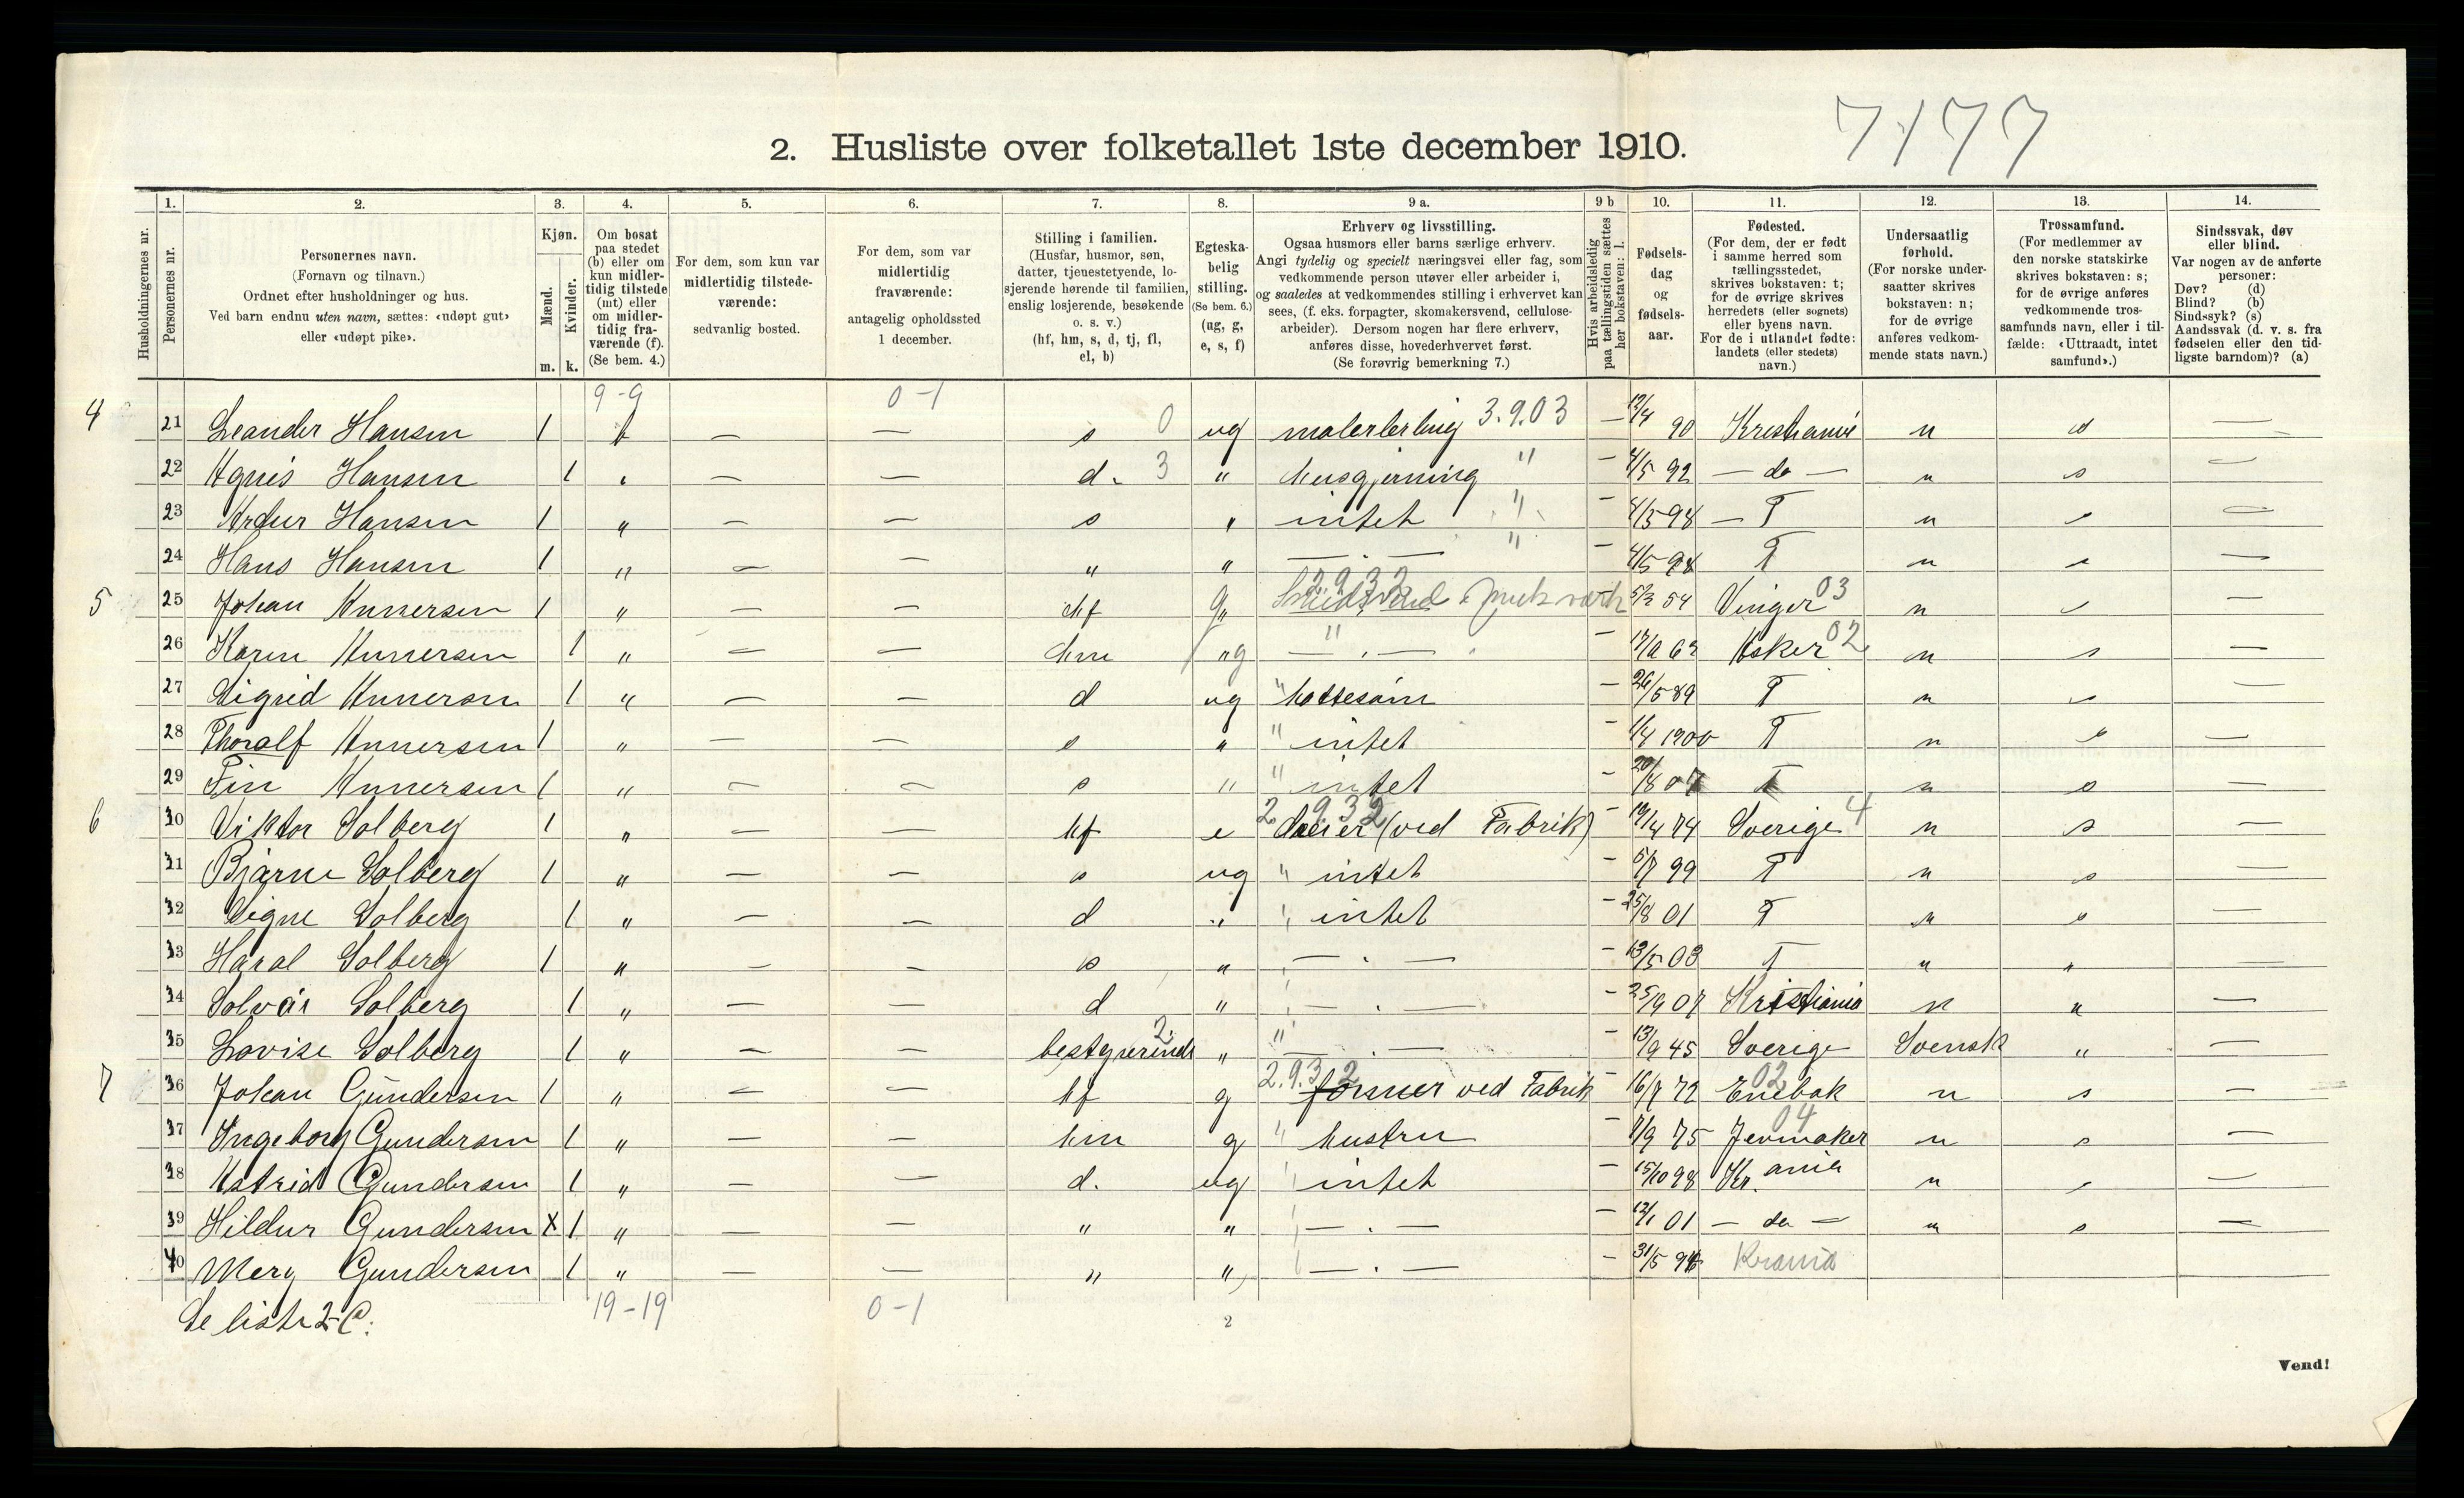 7177
2. Husliste over folketallet 1ste december 1910.
1. 2. 3. 4. 5. 6. 7. 8. 9 a. 9 b 10. 11. 12. 13. 14.
Husholdningernes nr.
Personernes nr.
Personernes navn.
(Fornavn og tilnavn.)
Ordnet efter husholdninger og hus.
Ved barn endnu uten navn, sættes: «udøpt gut»
eller «udøpt pike».
Kjøn.
Mænd.
Kvinder.
m. k.
Om bosat
paa stedet
(b) eller om
kun midler-
tidig tilstede
(mt) eller
om midler-
tidig fra-
værende (f).
(Se bem. 4.)
For dem, som kun var
midlertidig tilstede-
værende:
sedvanlig bosted.
For dem, som var
midlertidig
fraværende:
antagelig opholdssted
1 december.
Stilling i familien.
(Husfar, husmor, søn,
datter, tjenestetyende, lo-
sjerende hørende til familien,
enslig losjerende, besøkende
o. s. v.)
(hf, hm, s, d, tj, fl,
el, b)
Egteska-
belig
stilling.
(Se bem. 6.)
(ug, g,
e, s, f)
Erhverv og livsstilling.
Ogsaa husmors eller barns særlige erhverv.
Angi tydelig og specielt næringsvei eller fag, som
vedkommende person utøver eller arbeider i,
og saaledes at vedkommendes stilling i erhvervet kan
sees, (f. eks. forpagter, skomakersvend, cellulose-
arbeider). Dersom nogen har flere erhverv,
anføres disse, hovederhvervet først.
(Se forøvrig bemerkning 7.)
Hvis arbeidsledig
paa tællingstiden sættes
her bokstaven: l.
Fødsels-
dag
og
fødsels-
aar.
Fødested.
(For dem, der er født
i samme herred som
tællingsstedet,
skrives bokstaven: t;
for de øvrige skrives
herredets (eller sognets)
eller byens navn.
For de i utlandet fødte:
landets (eller stedets)
navn.)
Undersaatlig
forhold.
(For norske under-
saatter skrives
bokstaven: n;
for de øvrige
anføres vedkom-
mende stats navn.)
Trossamfund.
(For medlemmer av
den norske statskirke
skrives bokstaven: s;
for de øvrige anføres
vedkommende tros-
samfunds navn, eller i til-
fælde: «Uttraadt, intet
samfund».)
Sindssvak, døv
eller blind.
Var nogen av de anførte
personer:
Døv? (d)
Blind? (b)
Sindssyk? (s)
Aandssvak (d. v. s. fra
fødselen eller den tid-
ligste barndom)? (a)
9-9 0-1
4 21 Leander Hansen 1 b — — s 0 ug malerlerling 3.9.03 — 12/4 90 Kristiania n s —
22 Agnes Hansen 1 " — — d. 3 " husgjerning " — 4/5 92 — do — n s —
23 Ardur Hansen 1 " — — s " intet " — 4/5 94 — T n s —
24 Hans Hansen 1 " — — " " — . — " — 4/5 98 T n s —
5 25 JohanUnnersen 1 " — — hf g 2 9.32 — 5/2 54 Vinger 03 n s —
26 Karen Unnersen 1 " — — hm g — . — " — 17/11 62 Asker 02 n s —
27 Sigrid Unnersen 1 " — — d ug " hattesøm — 26/5 89 T n s —
28 Thoralf Unnersen 1 " — — s " " intet — 1/4 1900 T n s —
29 Fin Unnersen 1 " — — s " " intet — 20/8 07 T n s —
6 30 Viktor Solberg 1 " — — hf e 2.9.32 (ved Fabrik) — 19/4 74 Sverige 4 n s —
31 Bjarne Solberg 1 " — — s ug " intet — 5/7 99 T n s —
32 Signe Solberg 1 " — — d " " intet — 25/8 01 T n s —
33 Haral Solberg 1 " — — s " — . — — 13/5 03 T " " —
34 Solvår Solberg 1 " — — d " — . — — 25/9 07 Kristiania n " —
35 Lovise Solberg 1 " — — bestyrerinde 2 " " — . — — 13/9 45 Sverige Svensk " —
7 36 Johan Gundersen 1 " — — hf g 2.9.32 former ved Fabrik 16/7 72 Enebak 02 n s —
37 Ingeborg Gundersen 1 " — — hm g " hustru — 7/9 75 Jevnaker 04 n s —
38 Astrid Gundersen 1 " — — d. ug intet — 15/10 98 Kr.ania n s —
39 Hildur Gundersen X 1 " — — " " — . — — 12/1 01 — do — n s —
40 Mery Gundersen 1 " — — " " — . — — 31/5 94 Krania
Se liste 2 C.
19-19 0-1
2
Vend!